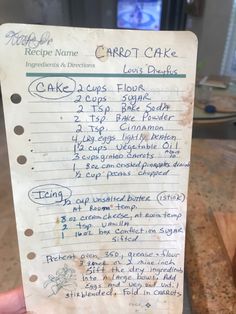 Recipe Name CARROT CAKE
Ingredients & Directions Louis Dreyfus
CAKE 2 CUPS FLOUR
2 CUPS SUGAR
2 Tsp. Bake Soda
2 Tsp. Bake Powder
2 Tsp. Cinnamon
4 Lg. eggs lightly beaten
1 1/2 cups Vegetable Oil
3 cups grated carrots
1 8oz can crushed pineapples drained
1/2 cup pecans chopped
Icing
1/2 cup unsalted butter (1 stick)
at Room temp.
8 oz cream cheese, at room temp
2 tsp. vanilla
1 16oz box Confection SUGAR
sifted
Preheat oven 350, grease & flour
2 9 inch
Sift the dry ingredients
into a large bowl. Add
Eggs and Veg oil
stir blended. Fold in Carrots